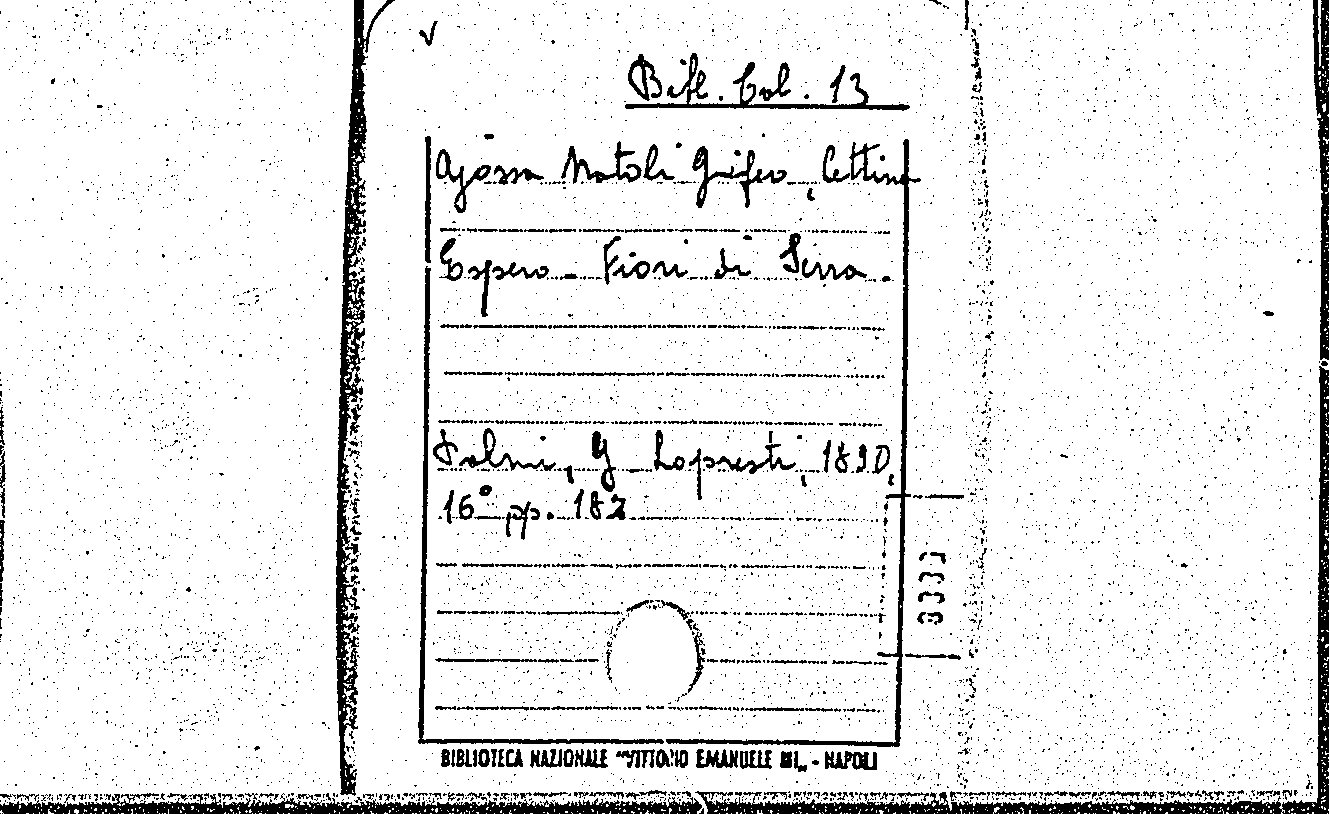 Bibl. Cal. 13
Ajossa Natoli Grifeo, Cettina
Espero - Fiori di Serra.
Palmi, G. Lopresti, 1890,
16° pp. 182
BIBLIOTECA NAZIONALE "VITTORIO EMANUELE III" - NAPOLI